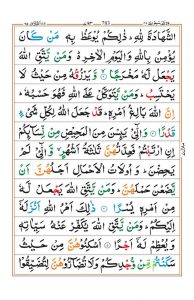 الشَّهَادَةَ لِلّٰهِ ؕ ذٰلِكُمْ يُوْعَظُ بِهٖ مَنْ كَانَ
يُؤْمِنُ بِاللّٰهِ وَالْيَوْمِ الْاٰخِرِ ؕ وَمَنْ يَّتَّقِ اللّٰهَ
يَجْعَلْ لَّهٗ مَخْرَجًا ۙ وَّيَرْزُقْهُ مِنْ حَيْثُ لَا
يَحْتَسِبُ ؕ وَمَنْ يَّتَوَكَّلْ عَلَى اللّٰهِ فَهُوَ حَسْبُهٗ ؕ
اِنَّ اللّٰهَ بَالِغُ اَمْرِهٖ ؕ قَدْ جَعَلَ اللّٰهُ لِكُلِّ شَيْءٍ
قَدْرًا وَالّٰٓـِٔيْ يَىِٕسْنَ مِنَ الْمَحِيْضِ مِنْ نِّسَآىِٕكُمْ
اِنِ ارْتَبْتُمْ فَعِدَّتُهُنَّ ثَلٰثَةُ اَشْهُرٍ ۙ وَّالّٰٓـِٔيْ لَمْ
يَحِضْنَ ؕ وَاُولَاتُ الْاَحْمَالِ اَجَلُهُنَّ اَنْ يَّضَعْنَ
حَمْلَهُنَّ ؕ وَمَنْ يَّتَّقِ اللّٰهَ يَجْعَلْ لَّهٗ
مِنْ اَمْرِهٖ يُسْرًا ذٰلِكَ اَمْرُ اللّٰهِ اَنْزَلَهٗٓ
اِلَيْكُمْ ؕ وَمَنْ يَّتَّقِ اللّٰهَ يُكَفِّرْ عَنْهُ سَيِّاٰتِهٖ
وَيُعْظِمْ لَهٗٓ اَجْرًا اَسْكِنُوْهُنَّ مِنْ حَيْثُ
سَكَنْتُمْ مِّنْ وُّجْدِكُمْ وَلَا تُضَآرُّوْهُنَّ لِتُضَيِّقُوْا